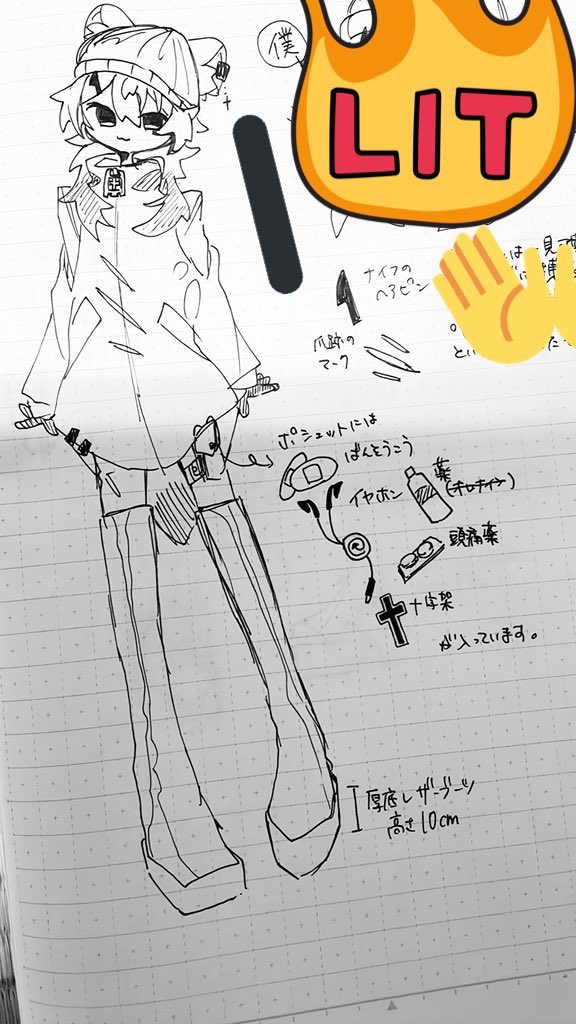 僕
LIT
は一見
ナイフの
ヘアピン
爪跡の
マーク
ポシェットには
ばんそうこう
イヤホン
薬
頭痛薬
十字架
が入っています。
厚底レザーブーツ
高さ10cm